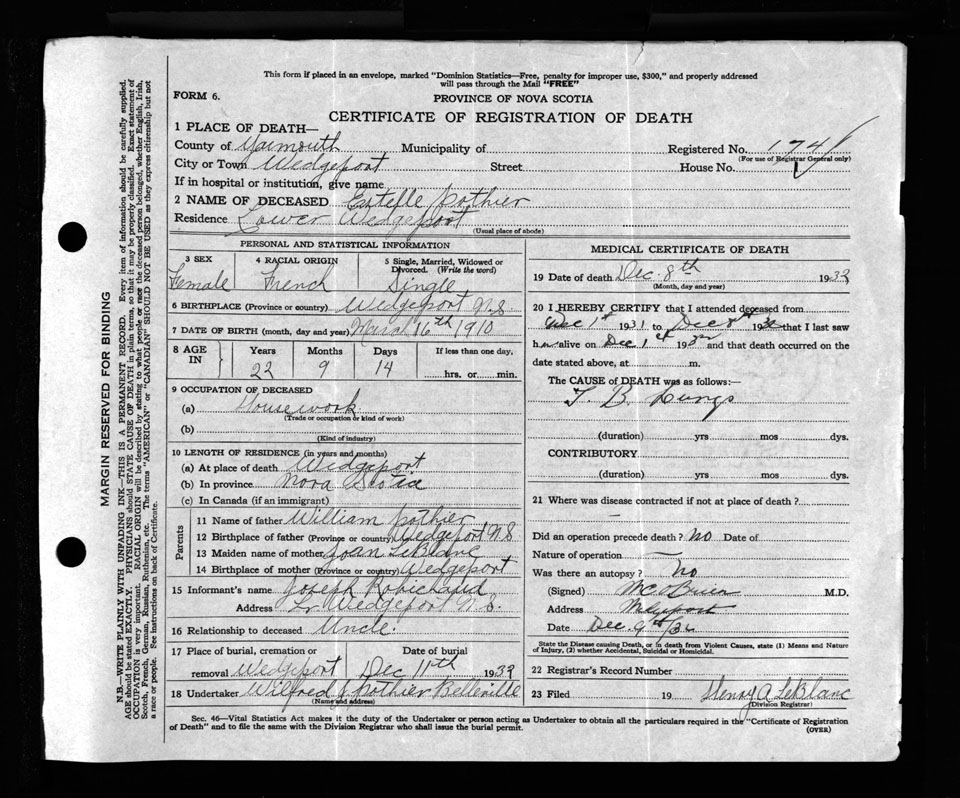 This form if placed in an envelope, marked "Dominion Statistics—Free, penalty for improper use, $300," and properly addressed
will pass through the Mail "FREE"
FORM 6.
PROVINCE OF NOVA SCOTIA
CERTIFICATE OF REGISTRATION OF DEATH
1 PLACE OF DEATH—
County of Yarmouth Municipality of Registered No. 1741
(For use of Registrar General only)
City or Town Wedgeport Street House No.
If in hospital or institution, give name
2 NAME OF DECEASED Estelle Pothier
Residence Lower Wedgeport
(Usual place of abode)
PERSONAL AND STATISTICAL INFORMATION
3 SEX 4 RACIAL ORIGIN 5 Single, Married, Widowed or
Divorced. (Write the word)
Female French Single
6 BIRTHPLACE (Province or country) Wedgeport N.S
7 DATE OF BIRTH (month, day and year) March 16th 1910
8 AGE IN Years Months Days If less than one day,
22 9 14 hrs. or min.
9 OCCUPATION OF DECEASED
(a) Housework
(Trade or occupation or kind of work)
(b)
(Kind of industry)
10 LENGTH OF RESIDENCE (in years and months)
(a) At place of death Wedgeport
(b) In province Nova Scotia
(c) In Canada (if an immigrant)
Parents
11 Name of father William Pothier
12 Birthplace of father (Province or country) Wedgeport N.S
13 Maiden name of mother Joan LeBlanc
14 Birthplace of mother (Province or country) Wedgeport
15 Informant's name Joseph Robichaud
Address Lr Wedgeport N.S.
16 Relationship to deceased Uncle
17 Place of burial, cremation or Date of burial
removal Wedgeport Dec 11th 1932
18 Undertaker Wilfred J Pothier Belleville
(Name and address)
MEDICAL CERTIFICATE OF DEATH
19 Date of death Dec. 8th 1932
(Month, day and year)
20 I HEREBY CERTIFY that I attended deceased from
Dec 1st 1931 to Dec 8th 1932 that I last saw
her alive on Dec 1st 1932 and that death occurred on the
date stated above, at m.
The CAUSE of DEATH was as follows:—
T. B. Lungs
(duration) yrs mos dys.
CONTRIBUTORY
(duration) yrs mos dys.
21 Where was disease contracted if not at place of death?
—
Did an operation precede death? no Date of
Nature of operation —
Was there an autopsy? no
(Signed) M.D.
Address
Date Dec. 9th/32
State the Disease causing Death, or in death from Violent Causes, state (1) Means and Nature
of Injury, (2) whether Accidental, Suicidal or Homicidal.
22 Registrar's Record Number
23 Filed 19 Henry A LeBlanc
(Division Registrar)
Sec. 46—Vital Statistics Act makes it the duty of the Undertaker or person acting as Undertaker to obtain all the particulars required in the "Certificate of Registration
of Death" and to file the same with the Division Registrar who shall issue the burial permit.
(OVER)
MARGIN RESERVED FOR BINDING
N.B.—WRITE PLAINLY WITH UNFADING INK—THIS IS A PERMANENT RECORD. Every item of information should be carefully supplied.
AGE should be stated EXACTLY. PHYSICIANS should STATE CAUSE OF DEATH in plain terms, so that it may be properly classified. Exact statement of
OCCUPATION is very important. RACIAL ORIGIN will be described by stating to what people or race the deceased person belonged, whether English, Irish,
Scotch, French, German, Russian, Ruthenian, etc. The terms "AMERICAN" or "CANADIAN" SHOULD NOT BE USED as they express citizenship but not
a race or people. See instructions on back of Certificate.